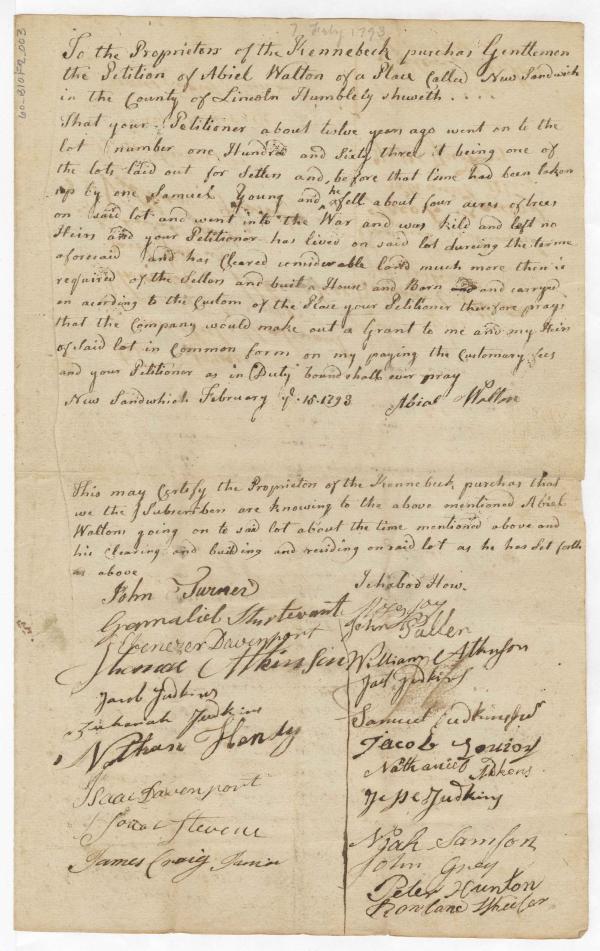 7 Feby 1793
60-810F2_003
To the Proprietors of the Kennebeck purchas Gentlemen
the Petition of Abiel Walton of a Place Called New Sandwich
in the County of Lincoln Humblely sheweth....
That your Petitioner about twelve years ago went on to the
lot number one Hundred and Sixty three it being one of
the lots laid out for Setlers and before that time had been taken
up by one Samuel Young and he fell about four acres of trees
on said lot and went into the War and was kild and left no
Heirs and your Petitioner has lived on said lot dureing the terme
aforesaid and has Cleared considerable land much more then is
required of the Setlers and buit a House and Barn and carryed
on acording to the Custom of the Place your Petitioner therefore prays
that the Company would make out a Grant to me and my Heirs
of Said lot in Common form on my paying the Customary fees
and your Petitioner as in Duty bound shall ever pray
New Sandwhich February ye. 15. 1793 Abial Walton
This may Certify the Proprietors of the Kennebeck purchas that
we the Subscribers are knowing to the above mentioned Abiel
Waltons going on to said lot about the time mentioned above and
his Clearing and building and residing on said lot as he has Set forth
as above
John Turner Ichabod How.
Gamaliel Sturtevant
Ebenezer Davenport John
Thomas Atkinson William Atkinson
Jacob Judkins Judkins
Zachariah Judkins Samuel Judkins
Nathan Handy Jacob
Nathaniel
Isaac Davenport Jesse Judkins
Isaac Stevens Samson
James Craig Junior John Grey
Peter Hunton
Rowland Wheeler